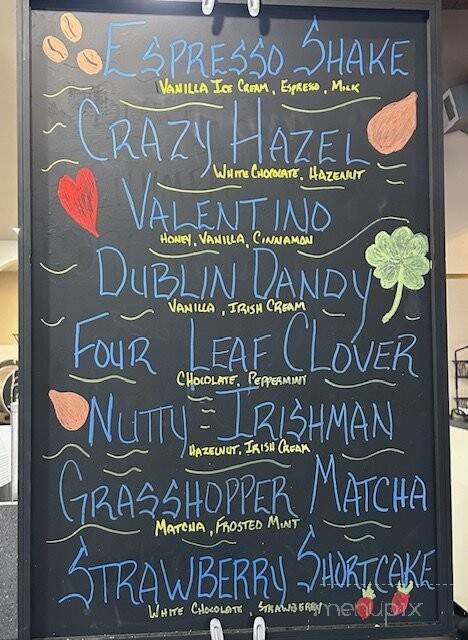 Espresso Shake
Vanilla Ice Cream, Espresso, Milk
Crazy Hazel
White Chocolate, Hazelnut
Valentino
Honey, Vanilla, Cinnamon
Dublin Dandy
Vanilla, Irish Cream
Four Leaf Clover
Chocolate, Peppermint
Nutty Irishman
Hazelnut, Irish Cream
Grasshopper Matcha
Matcha, Frosted Mint
Strawberry Shortcake
White Chocolate, Strawberry
menupix